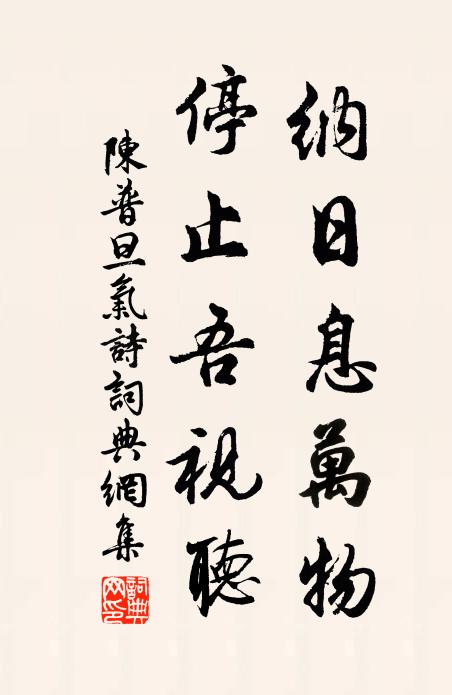 納日息萬物
停止吾視聽
陳普旦氣詩詞典網集
詞典網印